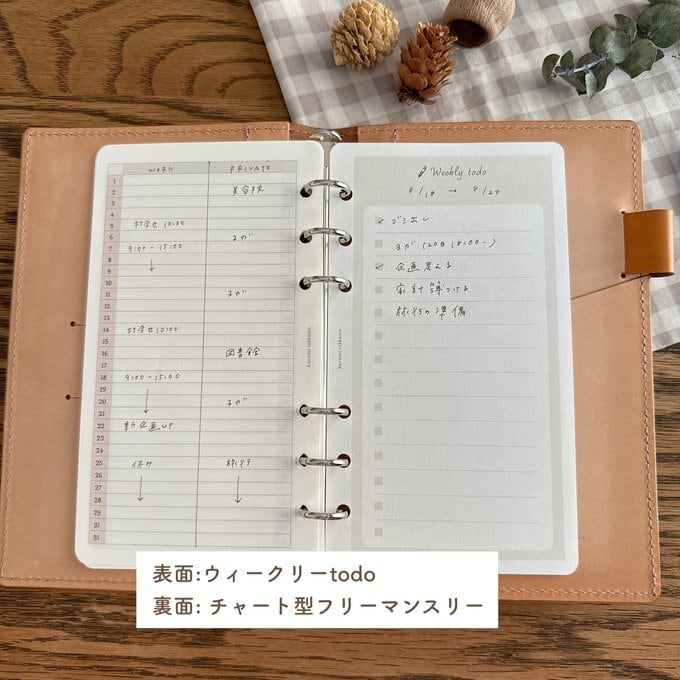 WORK PRIVATE
1
2 美容院
3
4
5 打合せ10:00
6 ヨガ
7 9:00-15:00
8 ↓
9
10
11 ヨガ
12
13
14 打合せ10:00
15
16 図書館
17
18 9:00-15:00
19
20 ヨガ
21
22 新企画UP
23
24
25 休み 旅行
26
27
28
29
30
31
kurumi sakkaten
kurumi sakkaten
Weekly todo
8/18 → 8/24
ゴミ出し
ヨガ(20日 18:00-)
企画考える
家計簿つける
旅行の準備
表面:ウィークリーtodo
裏面: チャート型フリーマンスリー